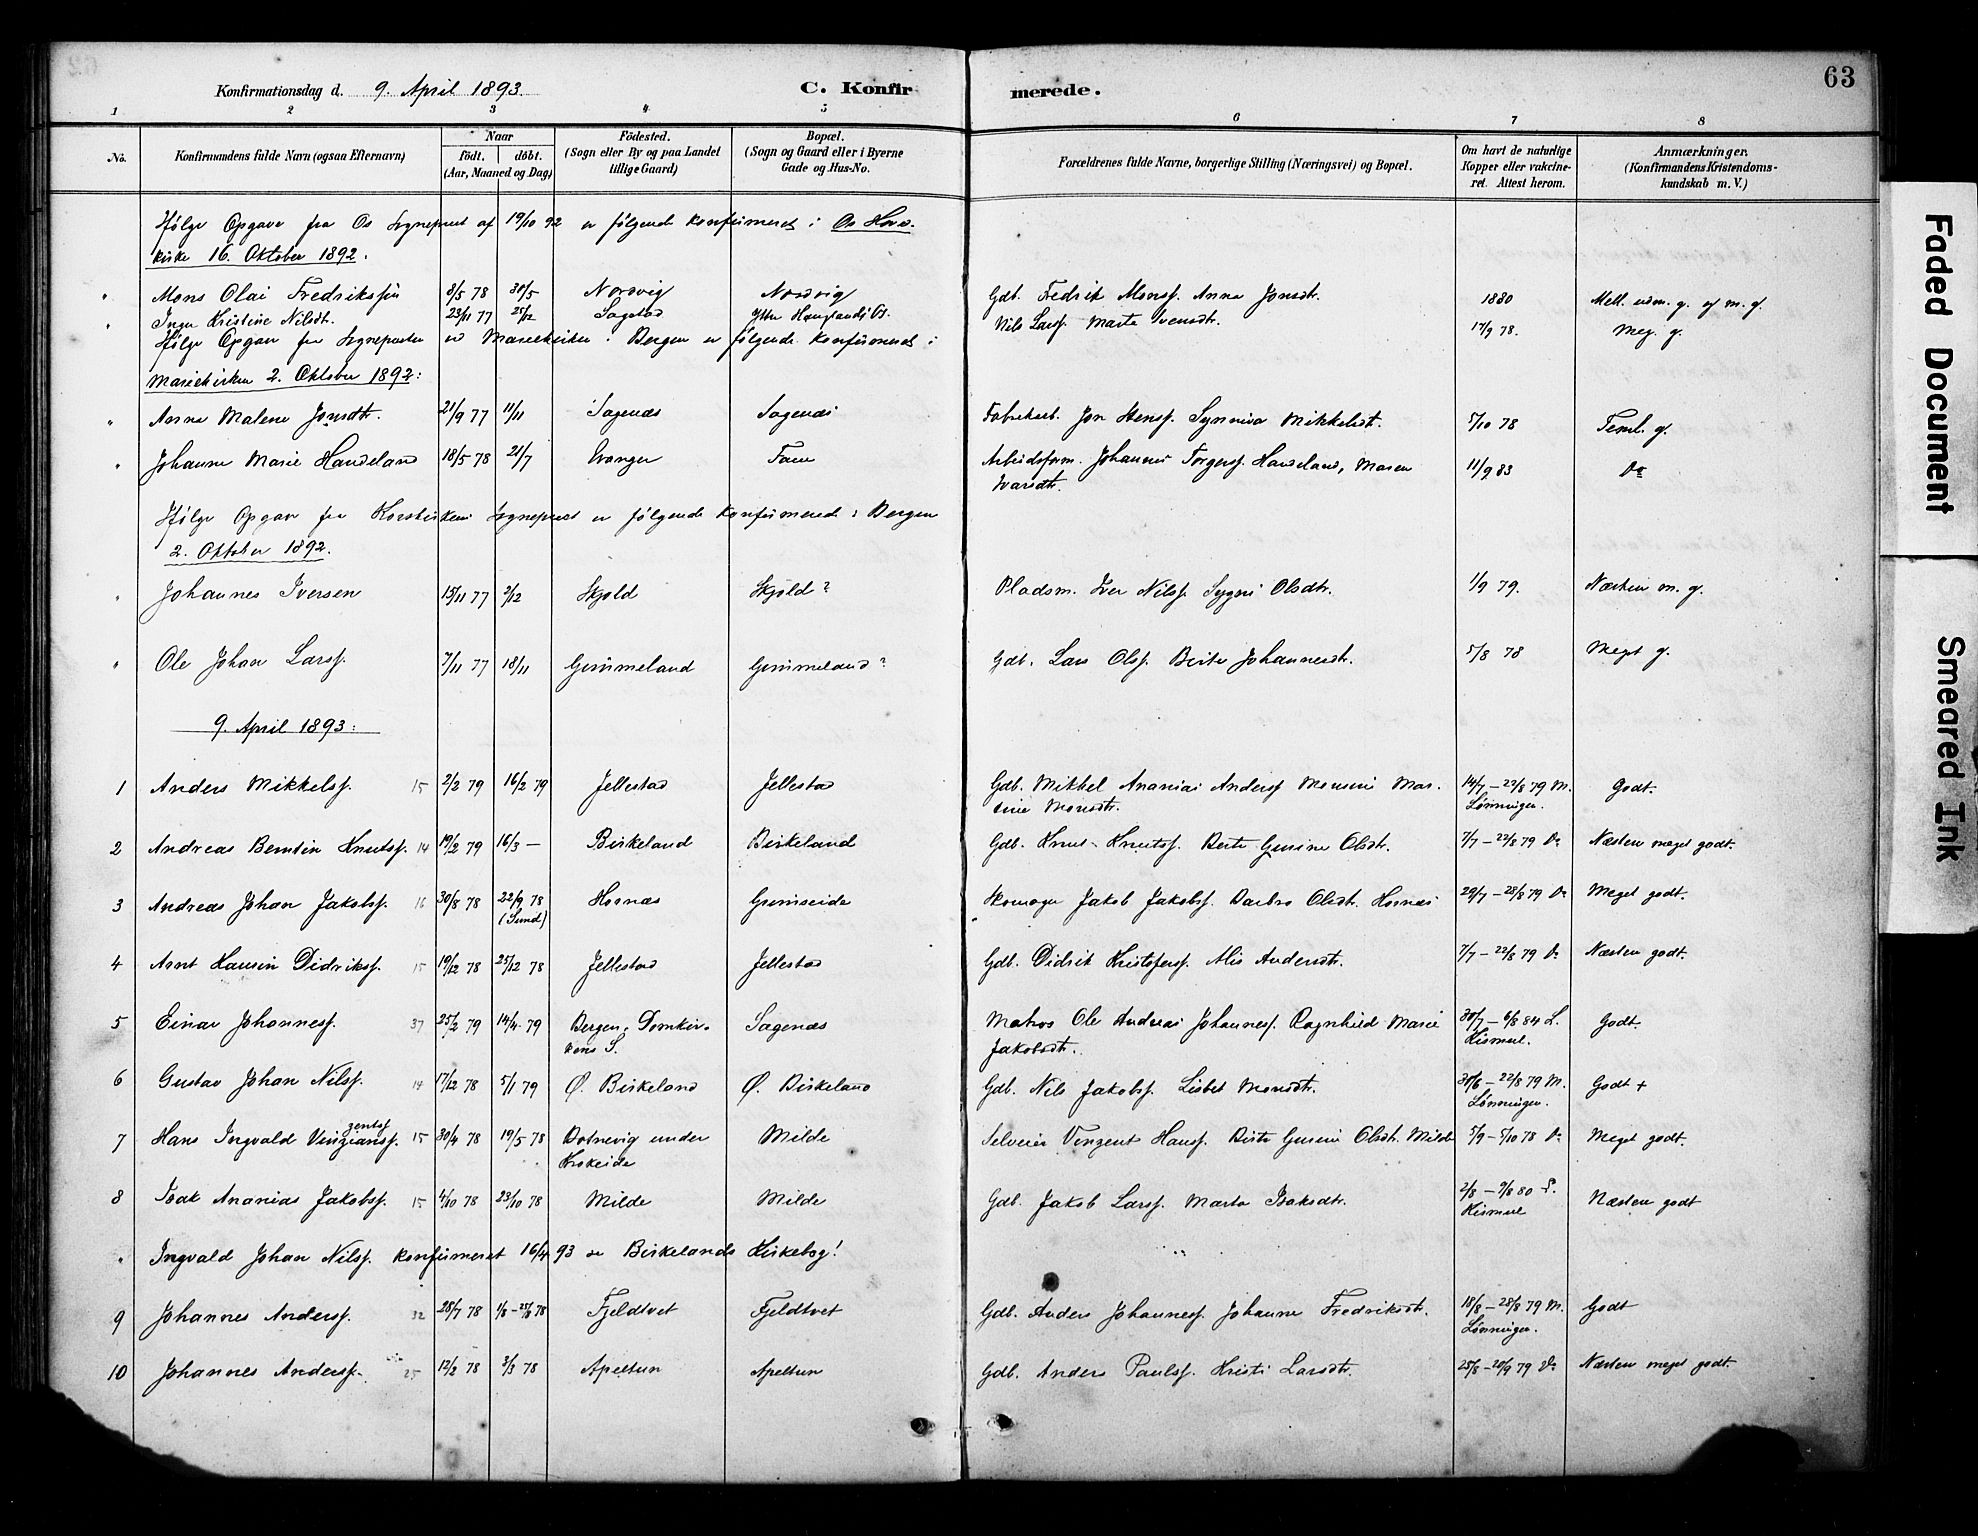 63
Konfirmationsdag d. 9. April 1893. C. Konfirmerede.
1 2 3 4 5 6 7 8
No. Konfirmandens fulde Navn (ogsaa Efternavn) Naar födt. döbt. (Aar, Maaned og Dag) Födested. (Sogn eller By og paa Landet tillige Gaard) Bopæl. (Sogn og Gaard eller i Byerne Gade og Hus-No. Forældrenes fulde Navne, borgerlige Stilling (Næringsvei) og Bopæl. Om havt de naturlige Kopper eller vakcineret. Attest herom. Anmærkninger. (Konfirmandens Kristendomskundskab m. V.)
Ifølge Opgave fra Os Sogneprest af 19/10 92 er følgende konfirmeret i Os Hoved-
kirke 16. Oktober 1892.
" Mons Olai Fredriksen 8/5 78 30/5 Nordvig Nordvig Gdb. Fedrik Monss. Anna Jonsdtr. 1880 Mell. udm. g. og m. g.
" Inga Kristine Nilsdt. 23/11 77 25/12 Sagstad Nils Larss. Marta 17/9 78. Meg. g.
Ifølge Opgave fra Sognepresten ved Mariekirken i Bergen er følgende konfirmeret i
Mariekirken 2. Oktober 1892:
" Anna Malene Jonsdtr. 21/9 77 11/11 Sagenæs Sagenæs Fabrikarb. Jon Stenss. Synniva Mikkelsdt. 5/10 78 Teml. g.
" Johanne Marie Handeland 18/5 78 21/7 Evanger Fane Arbeidsform. Johannes Torgerss. Handeland, Maren 11/9 83 Do
Ivarsdtr.
Ifølge Opgave fra Korskirkens Sogneprest er følgende konfirmerede i Bergen
2. Oktober 1892.
" Johannes Iversen 15/11 77 2/12 Skjold Skjold? Pladsm. Iver Nilss. Sygni Olsdtr. 1/9 79. Næsten m. g.
" Ole Johan Larss. 7/11 77 18/11 Grimmeland Grimmeland? Gdb. Lars Olss. Birte Johannesdtr. 5/8 78 Meget g.
9. April 1893:
1 Anders Mikkelss. 15 2/2 79 16/2 79 Jellestad Jellestad Gdb. Mikkel Ananias Anderss Monsine Mar- 14/7 – 22/8 79 M. Godt.
tine Monsdtr. Lønningen.
2 Andreas Berntin Knutss. 14 19/2 79 16/3 — Birkeland Birkeland Gdb. Knut Knutss. Berte Gurine Olsdtr. 7/7 – 22/8 79 Do Næsten meget godt.
3 Andreas Johan Jakobss. 16 30/8 78 22/9 78 Hornæs Grimseide Skomager Jakob Jakobss. Barbro Olsdt. Hornæs 29/7 – 28/8 79 Do Meget godt.
(Sund)
4 Arnt Hansin Didrikss. 15 19/12 78 25/12 78 Jellestad Jellestad Gdb. Didrik Kristoferss. Alis Andersdtr. 7/7 – 22/8 79 Do Næsten godt.
5 Einar Johanness. 37 25/2 79 14/4 79 Bergen, Domkir- Sagenæs Matros Ole Andreas Johanness. Ragnhild Marie 30/7 – 6/8 84 L. Godt.
kens S. Jakobsdtr. Kismul.
6 Gustav Johan Nilss. 14 17/12 78 5/1 79 Ø. Birkeland Ø. Birkeland Gdb. Nils Jakobss. Lisbet Monsdtr. 30/6 – 22/8 79 M. Godt +
Lønningen.
zentss
7 Hans Ingvald Vingianss. 15 30/4 78 19/5 78 Botnevig under Milde Selveier Vinzent Hanss. Birte Gurine Olsdtr. Milde 5/9 – 5/10 78 Do Meget godt.
Krokeide
8 Isak Ananias Jakobss. 15 4/10 78 23/10 78 Milde Milde Gdb. Jakob Larss. Marta Isaksdtr. 2/8 – 9/8 80 P. Næsten godt
Kismul
" Ingvald Johan Nilss. konfirmeret 16/4 93 se Birkelands Kirkebog!
9 Johannes Anderss. 32 28/7 78 1/8 – 25/8 78 Fjeldtvet Fjeldtvet Gdb. Anders Johanness. Johanna Fredriksdtr. 18/8 – 28/8 79 M. Godt
Lønningen.
10 Johannes Anderss. 25 12/2 78 3/3 78 Apeltun Apeltun Gdb. Anders Paulss. Kristi Larsdtr. 25/8 – 20/9 79 Do Næsten meget godt
Faded Document
Smeared Ink